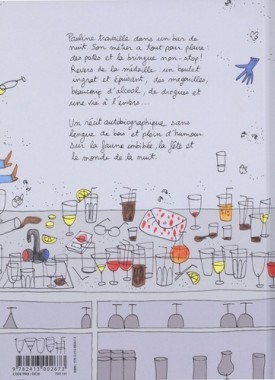 Pauline travaille dans un bar de
nuit. Son métier a tout pour plaire :
des potes et la bringue non-stop !
Revers de la médaille : un boulot
ingrat et épuisant, des magouilles,
beaucoup d'alcool, de drogues et
une vie à l'envers...
Un récit autobiographique sans
langue de bois et plein d'humour
sur la faune imbibée, la fête et
le monde de la nuit.
9 782413 002673